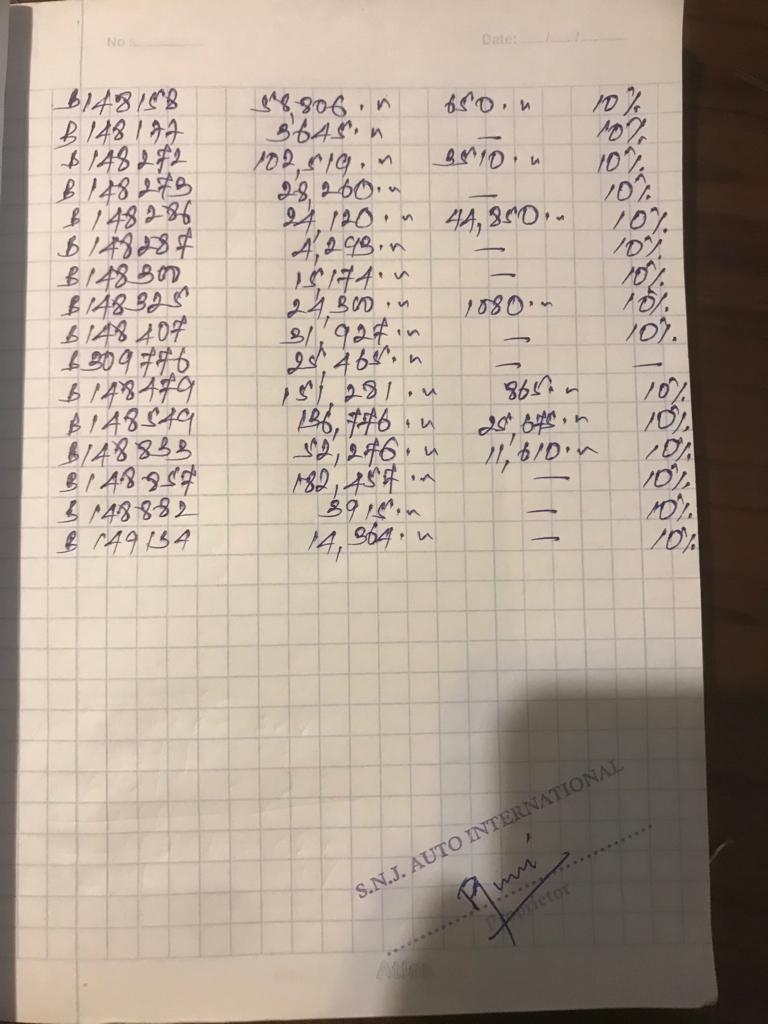 No :
Date: / /
B148158 58,806.n 650.n 10%
B148177 3,645.n — 10%
B148272 102,519.n 3510.n 10%
B148273 28,260.n — 10%
B148286 24,120.n 44,850.n 10%
B148287 4,293.n — 10%
B148300 15,174.n — 10%
B148325 24,300.n 1080.n 10%
B148407 31,927.n — 10%
B309776 25,465.n — —
B148479 151,281.n 865.n 10%
B148549 136,776.n 25,675.n 10%
B148833 52,276.n 11,610.n 10%
B148857 182,457.n — 10%
B148882 3915.n — 10%
B149134 14,364.n — 10%
S.N.J. AUTO INTERNATIONAL
Proprietor
Atlas